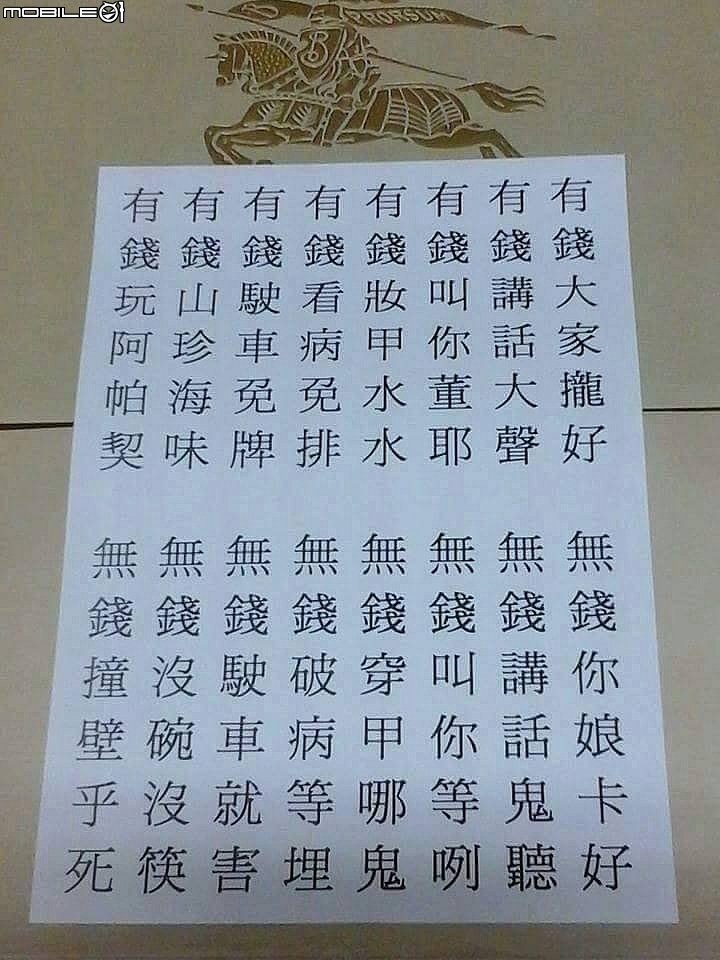 MOBILE01
PRORSUM
有錢大家攏好
有錢講話大聲
有錢叫你董耶
有錢妝甲水水
有錢看病免排
有錢駛車免牌
有錢山珍海味
有錢玩阿帕契
無錢你娘卡好
無錢講話鬼聽
無錢叫你等咧
無錢穿甲哪鬼
無錢破病等埋
無錢駛車就害
無錢沒碗沒筷
無錢撞壁乎死